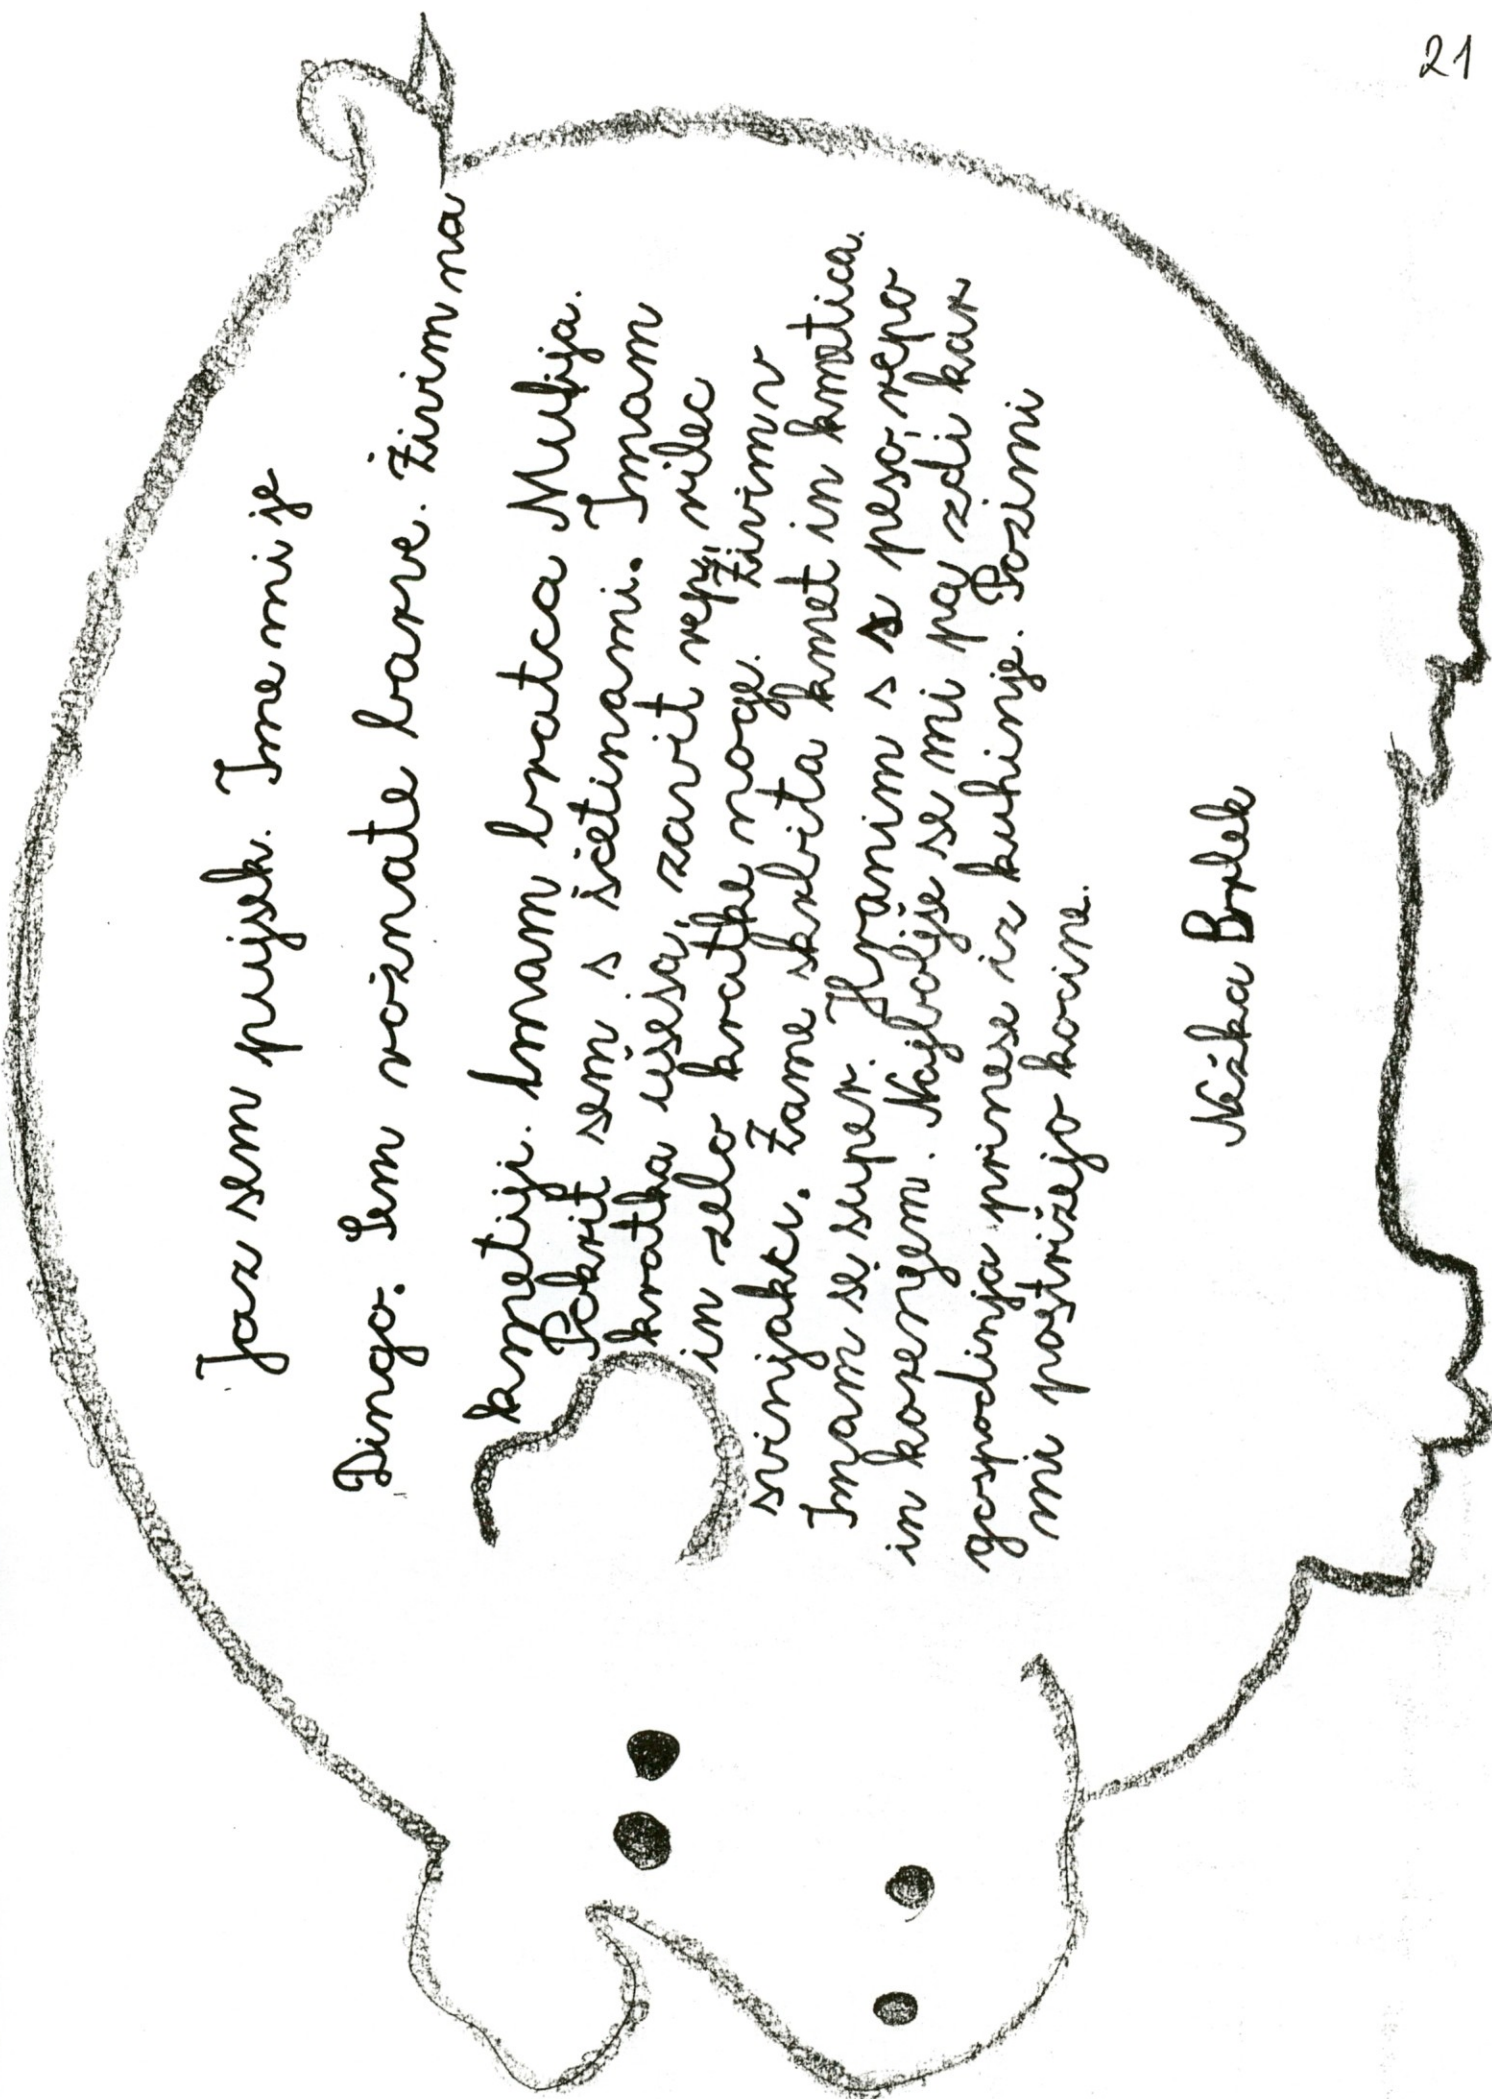 21
Jaz sem pujsek. Ime mi je
Dingo. Sem rožnate barve. Živim na
kmetiji. Imam bratca Mulija.
Pokrit sem s ščetinami. Imam
kratka ušesa, zavit rep, rilec
in zelo kratke noge. Živim v
svinjaku. Zame skrbita kmet in kmetica.
Imam se super. Hranim s s peso, repo
in korenjem. Najboljše se mi pa zdi kar
gospodinja prinese iz kuhinje. Pozimi
mi postrižejo kocine.
Nežka Brlek